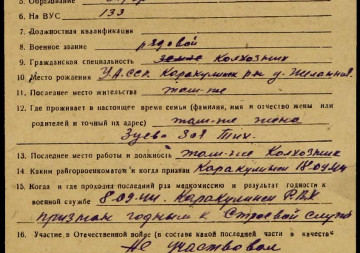 5. Образование
6. На ВУС 133
7. Должностная квалификация
8. Военное звание рядовой
9. Гражданская специальность Колхозник
10. Место рождения УАССР Каракулинск р-н д.
11. Последнее место жительства там-же
12. Где проживает в настоящее время семья (фамилия, имя и отчество жены или
родителей и точный их адрес) там-же жена
Зуева Зоя Тих.
13. Последнее место работы и должность там-же Колхозник
14. Каким райгорвоенкоматом и когда призван Каракулинск
15. Когда и где проходил последний раз медкомиссию и результат годности к
военной службе Каракулинск РВК
признан годным к строевой службе
16. Участие в Отечественной войне (в составе какой последней части в качестве
Не участвовал